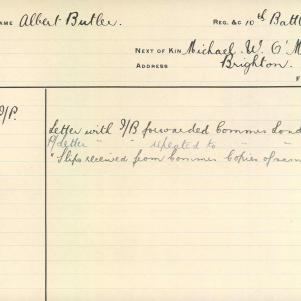 NAME Albert Butler. REG. &C 10th Batt
NEXT OF KIN Michael W. O'M
ADDRESS Brighton.
F
I/P.
Letter with I/B forwarded Commes Lond
P/Letter " " repeated to " "
" Slips received from Commes Copies of same